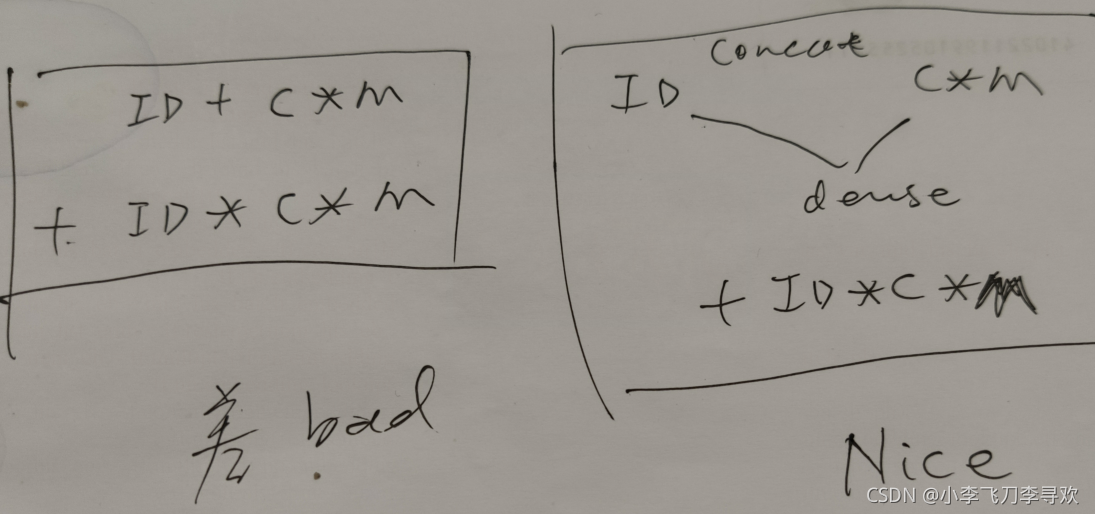 ID + C * m
+ ID * C * m
差 bad
concat
ID C * m
dense
+ ID * C * m
Nice
CSDN @小李飞刀李寻欢